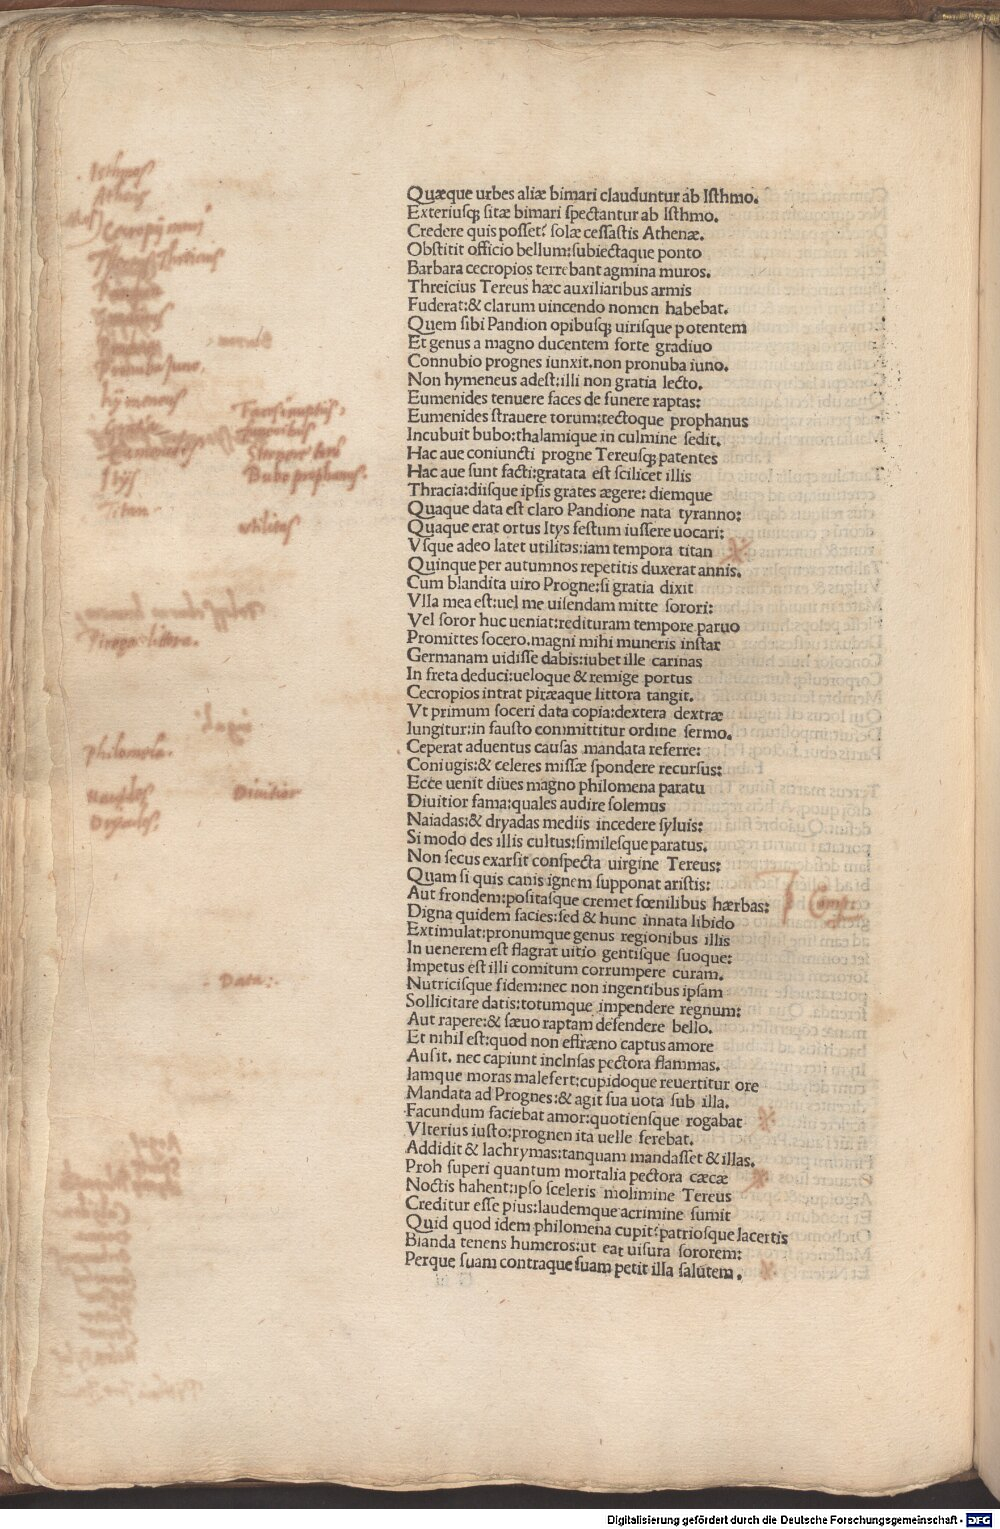 Quæque urbes aliæ bimari clauduntur ab Isthmo.
Exteriusqꝫ sitæ bimari spectantur ab Isthmo.
Credere quis posset? solæ cessastis Athenæ.
Obstitit officio bellum:subiectaque ponto
Barbara cecropios terrebant agmina muros.
Threicius Tereus hæc auxiliaribus armis
Fuderat:& clarum uincendo nomen habebat.
Quem sibi Pandion opibusqꝫ uirisque potentem
Et genus a magno ducentem forte gradiuo
Connubio prognes iunxit.non pronuba iuno.
Non hymeneus adest:illi non gratia lecto.
Eumenides tenuere faces de funere raptas:
Eumenides strauere torum:tectoque prophanus
Incubuit bubo:thalamique in culmine sedit.
Hac aue coniuncti progne Tereusqꝫ patentes
Hac aue sunt facti:gratata est scilicet illis
Thracia:diisque ipsis grates ægere: diemque
Quaque data est claro Pandione nata tyranno:
Quaque erat ortus Itys festum iussere uocari:
Vsque adeo latet utilitas:iam tempora titan
Quinque per autumnos repetitis duxerat annis.
Cum blandita uiro Progne:si gratia dixit
Vlla mea est:uel me uisendam mitte sorori:
Vel soror huc ueniat:redituram tempore paruo
Promittes socero.magni mihi muneris instar
Germanam uidisse dabis:iubet ille carinas
In freta deduci:ueloque & remige portus
Cecropios intrat piræaque littora tangit.
Vt primum soceri data copia:dextera dextræ
Iungitur:in fausto committitur ordine sermo.
Ceperat aduentus causas mandata referre:
Coniugis:& celeres missæ spondere recursus:
Ecce uenit diues magno philomena paratu
Diuitior fama:quales audire solemus
Naiadas:& dryadas mediis incedere syluis:
Si modo des illis cultus:similesque paratus.
Non secus exarsit conspecta uirgine Tereus:
Quam si quis canis ignem supponat aristis:
Aut frondem:positasque cremet fœnilibus hærbas:
Digna quidem facies:sed & hunc innata libido
Extimulat:pronumque genus regionibus illis
In uenerem est flagrat uitio gentisque suoque:
Impetus est illi comitum corrumpere curam.
Nutricisque fidem:nec non ingentibus ipsam
Sollicitare datis:totumque impendere regnum:
Aut rapere:& sæuo raptam defendere bello.
Et nihil est:quod non effræno captus amore
Ausit. nec capiunt inclnsas pectora flammas.
Iamque moras malefert:cupidoque reuertitur ore
Mandata ad Prognes:& agit sua uota sub illa.
Facundum faciebat amor:quotiensque rogabat
Vlterius iusto:prognen ita uelle ferebat.
Addidit & lachrymas:tanquam mandasset & illas.
Proh superi quantum mortalia pectora cæcæ
Noctis hahent:ipso sceleris molimine Tereus
Creditur esse pius:laudemque acrimine sumit
Quid quod idem philomena cupit?patriosque lacertis
Blanda tenens humeros:ut eat uisura sororem:
Perque suam contraque suam petit illa salutem.
Athenis
Pronuba Juno.
hymeneus
Itys
Titan
Bubo prophanus.
utilitas
philomela.
Diuitior
Data:
Digitalisierung gefördert durch die Deutsche Forschungsgemeinschaft - DFG